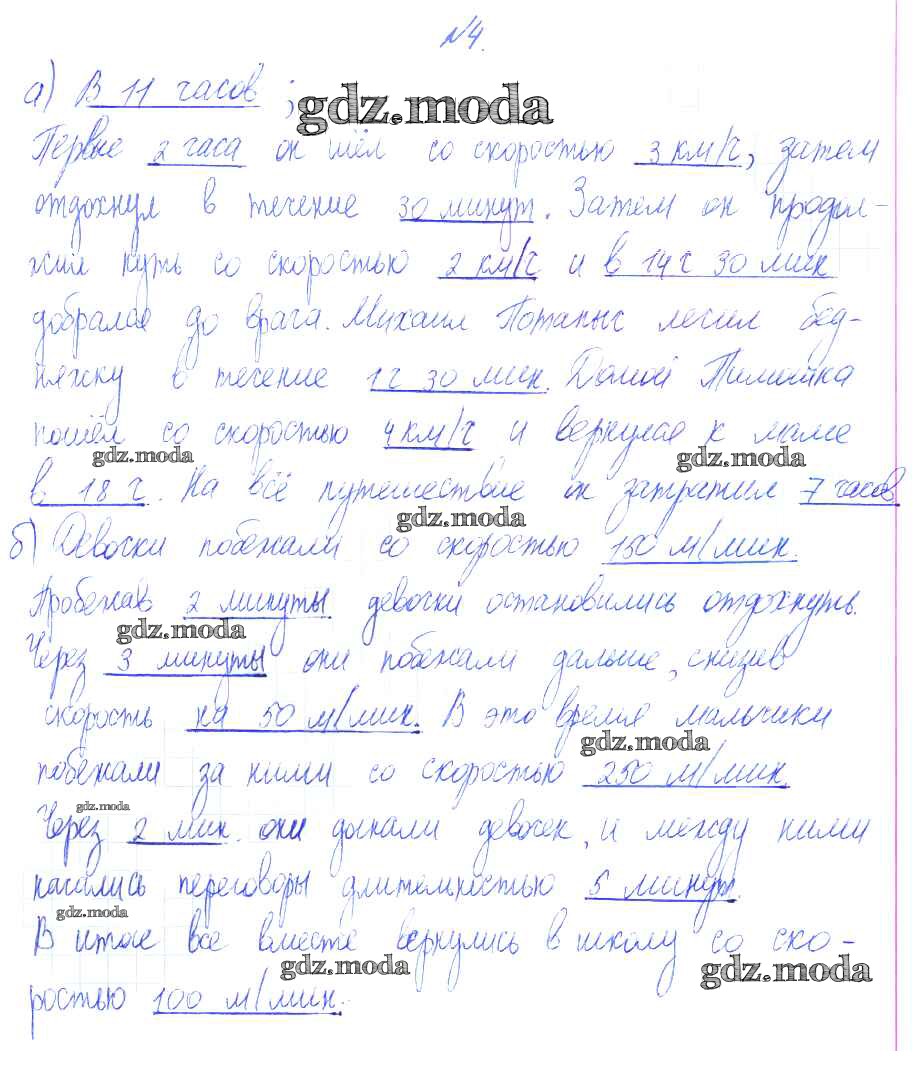 №4.
а) В 11 часов;
gdz.moda
Первые 2 часа он шёл со скоростью 3 км/ч, затем
отдохнул в течение 30 минут. Затем он продол-
жил путь со скоростью 2 км/ч и в 14 ч 30 мин
добрался до врача. Михаил Потапыч лечил бед-
няжку в течение 1 ч 30 мин. Домой Тимошка
пошёл со скоростью 4 км/ч и вернулся к маме
gdz.moda gdz.moda
в 18 ч. На всё путешествие он затратил 7 часов
gdz.moda
б) Девочки побежали со скоростью 150 м/мин.
Пробежав 2 минуты девочки остановились отдохнуть.
gdz.moda
Через 3 минуты они побежали дальше, снизив
скорость на 50 м/мин. В это время мальчики
gdz.moda
побежали за ними со скоростью 250 м/мин
gdz.moda
Через 2 мин. они догнали девочек, и между ними
начались переговоры длительностью 5 минут.
gdz.moda
В итоге все вместе вернулись в школу со ско-
gdz.moda gdz.moda
ростью 100 м/мин.